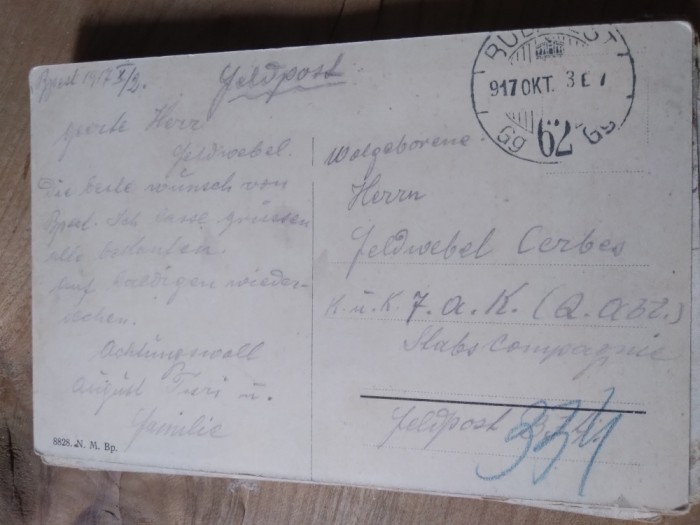 Bpest 1917 X/2.
Feldpost
geerte Herr
Feldwebel.
Die beste wünsch von
Bpest. Ich lasse grüssen
alle bekanten.
auf baldigen wieder-
sehen.
Achtungswoll
August Turi u.
Familie
8828. N. M. Bp.
BUDAPEST
917 OKT. 3 E 7
62
Wolgeborene
Herrn
Feldwebel Cerbes
K. u. K. 7. a. K. (Q. abt.)
Stabs Compagnie
Feldpost
334